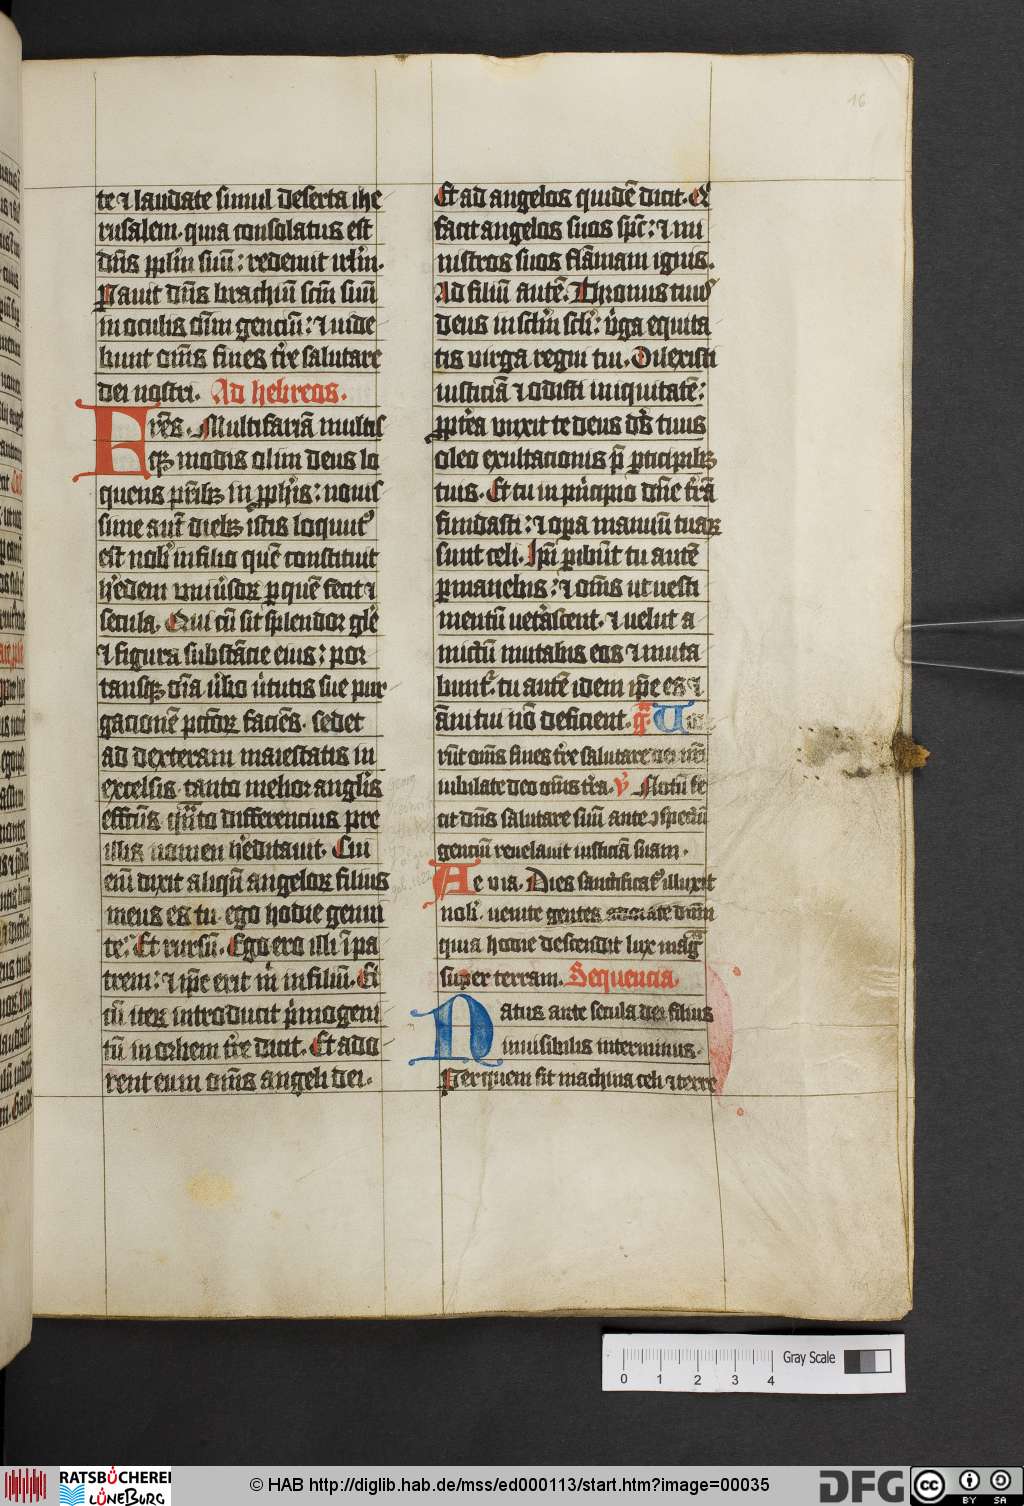 16
te ⁊ laudate simul deserta ihe
rusalem. quia consolatus est
dn̄s ppl̄m suū: redemit irl̄m.
Pauit dn̄s brachiū sc̄m suū
in oculis om̄m genciū: ⁊ uide
bunt om̄s fines tr̄e salutare
dei nostri. Ad hebreos.
Fr̄es. Multifariā multis
qꝫ modis olim deus lo
quens pr̄ibꝫ in pph̄is: nouis
sime aut̄ diebꝫ istis loquut᷒
est nob̄ in filio quē constituit
h̄edem vniūsoꝝ ꝑ quē fecit ⁊
secula. Qui cū sit splendor gl̄e
⁊ figura substācie eius: por
tansqꝫ om̄a ūbo ūtutis sue pur
gacionē pctōꝝ faciēs. sedet
ad dexteram maiestatis in
excelsis. tanto melior angl̄is
effectꝰ quāto differencius pre
illis nomen h̄editauit. Cui
eni dixit aliqn̄ angeloꝝ filius
meus es tu. ego hodie genui
te: Et rursū. Ego ero illi ī pa
trem: ⁊ ip̄e erit m̄ in filiū. Et
cū iteꝝ introducit p̄mogeni
tū in orbem tr̄e dicit. Et ado
rent eum om̄s angeli dei.
Et ad angelos quidē dicit. Q̄
facit angelos suos sp̄c: ⁊ mi
nistros suos flāmam ignis.
Ad filiū autē. Thronus tuꝰ
deus in sc̄lm sc̄li: ūga equita
tis virga regni tui. Dilexisti
iusticiā ⁊ odisti iniquitatē:
ppt̄ea vnxit te deus ds̄ tuus
oleo exultacionis p̄ ꝑticipibꝫ
tuis. Et tu in pn̄cipio dn̄e tr̄ā
fundasti: ⁊ oꝑa manuū tuaꝝ
sunt celi. Ip̄i ꝑibūt tu autē
ꝑmanebis: ⁊ om̄s ut uesti
mentū uetāscent. ⁊ uelut a
mictū mutabis eos ⁊ muta
bunt᷒. tu autē idem ip̄e es ⁊
āni tui nō deficient. Gr̄. Vide
rūt om̄s fines tr̄e salutare dei nr̄i
iubilate deo om̄s tr̄a. V̄ Notū fe
cit dn̄s salutare suū ante ꝯspectū
genciū reuelauit iusticiā suam.
Ae via. Dies sanctificat᷒ illuxit
nob̄. uenite gentes adorate dn̄m
quia hodie descendit lux magͣ
super terram. Sequencia.
Natus ante secula dei filius
inuisibilis interminus.
Per quem fit machina celi ⁊ terre
0 1 2 3 4
Gray Scale
RATSBÜCHEREI
LÜNEBURG
© HAB http://diglib.hab.de/mss/ed000113/start.htm?image=00035
DFG
cc
BY SA